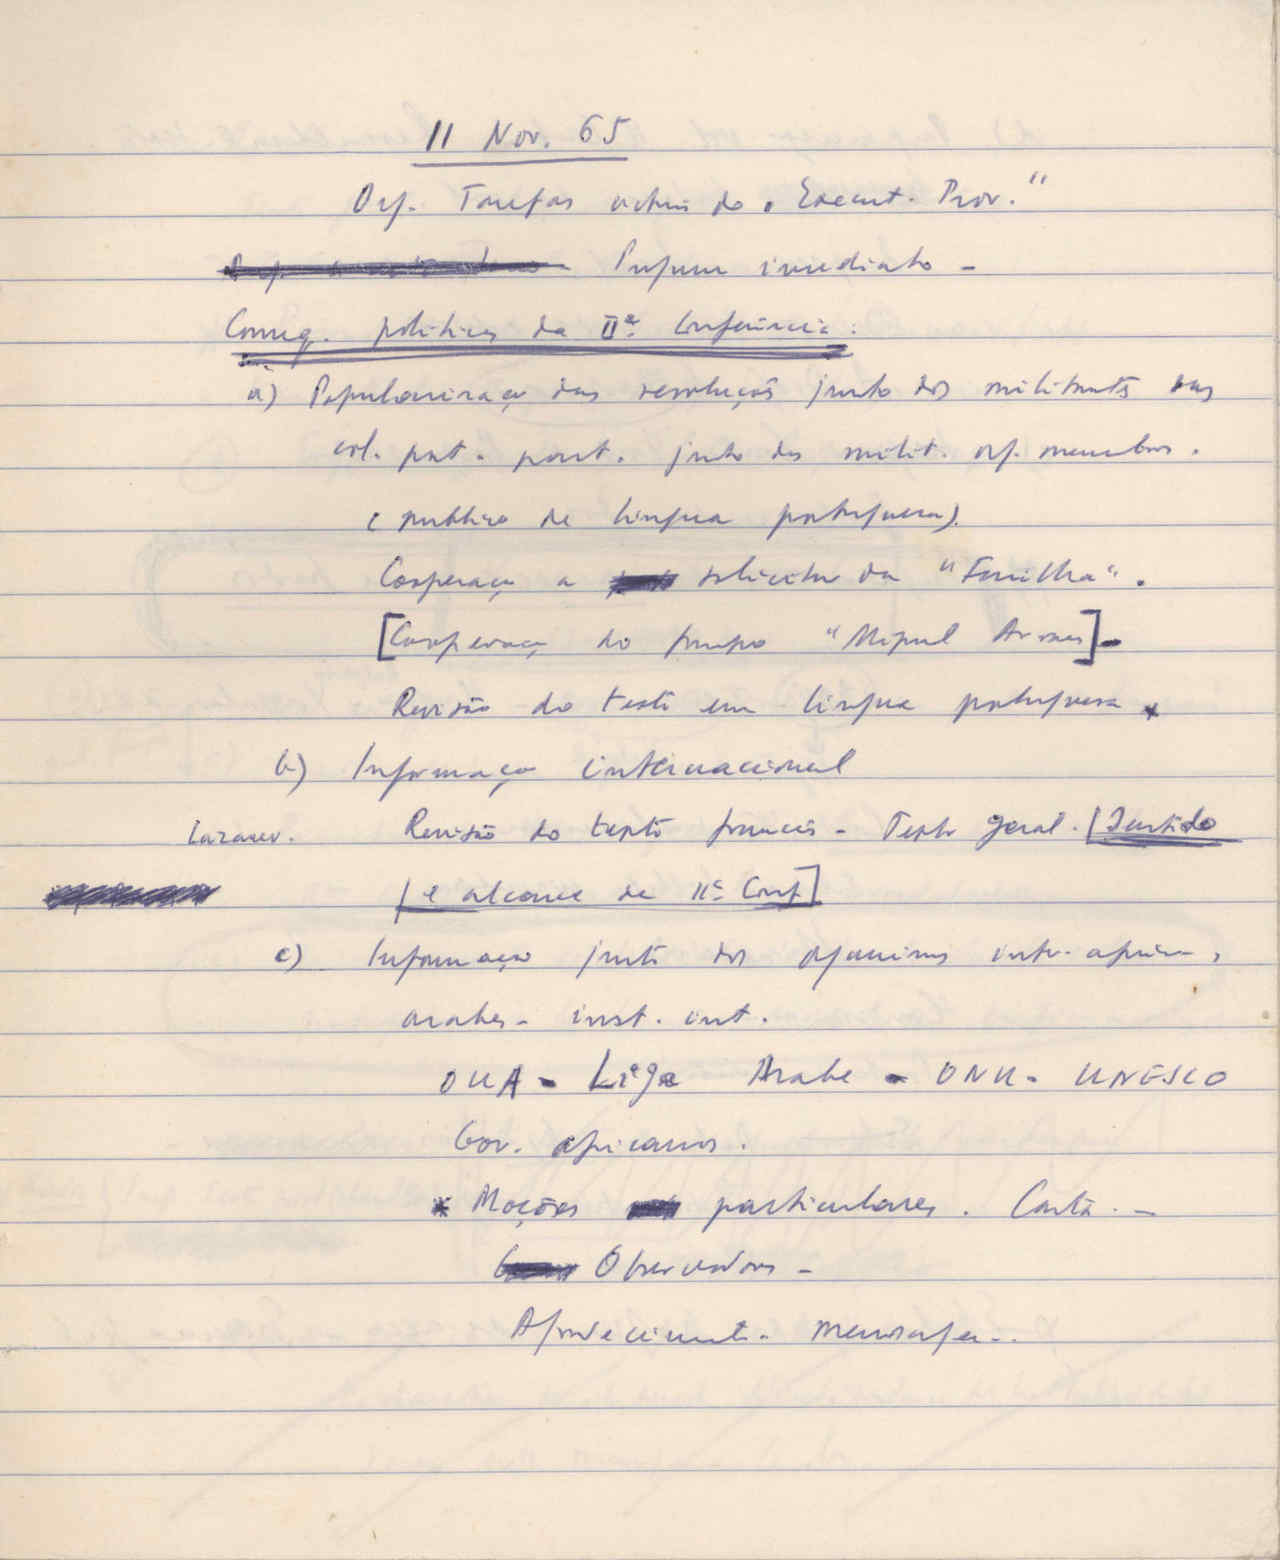 11 Nov. 65
Org. Tarefas actuais do "Execut. Prov."
imediato -
Conseq. políticas da IIª Conferência:
a) Popularização das resoluções junto dos militantes nas
col. port. junto dos milit. org. membros.
(publico de lingua portuguesa).
Cooperação a solicitar da "Familha".
[Cooperação do grupo "Miguel Armas]-
Revisão do texto em lingua portuguesa *
b) Informação internacional
Lazarev. Revisão do texto francês - Texto geral. [Sentido
[e alcance da IIª Conf]
c) Informação junto dos organismos inter-african.,
arabes - inst. int.
OUA - Liga Arabe - ONU - UNESCO
Gov. africanos.
* Moções particulares. Carta. -
Observadores -
Agradeciment. mensagen..